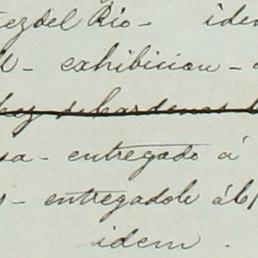 ezdel Rio - iden
- exhibicion -
hez de Cardenas
sa - entregado á
s - entregadole á
idem .